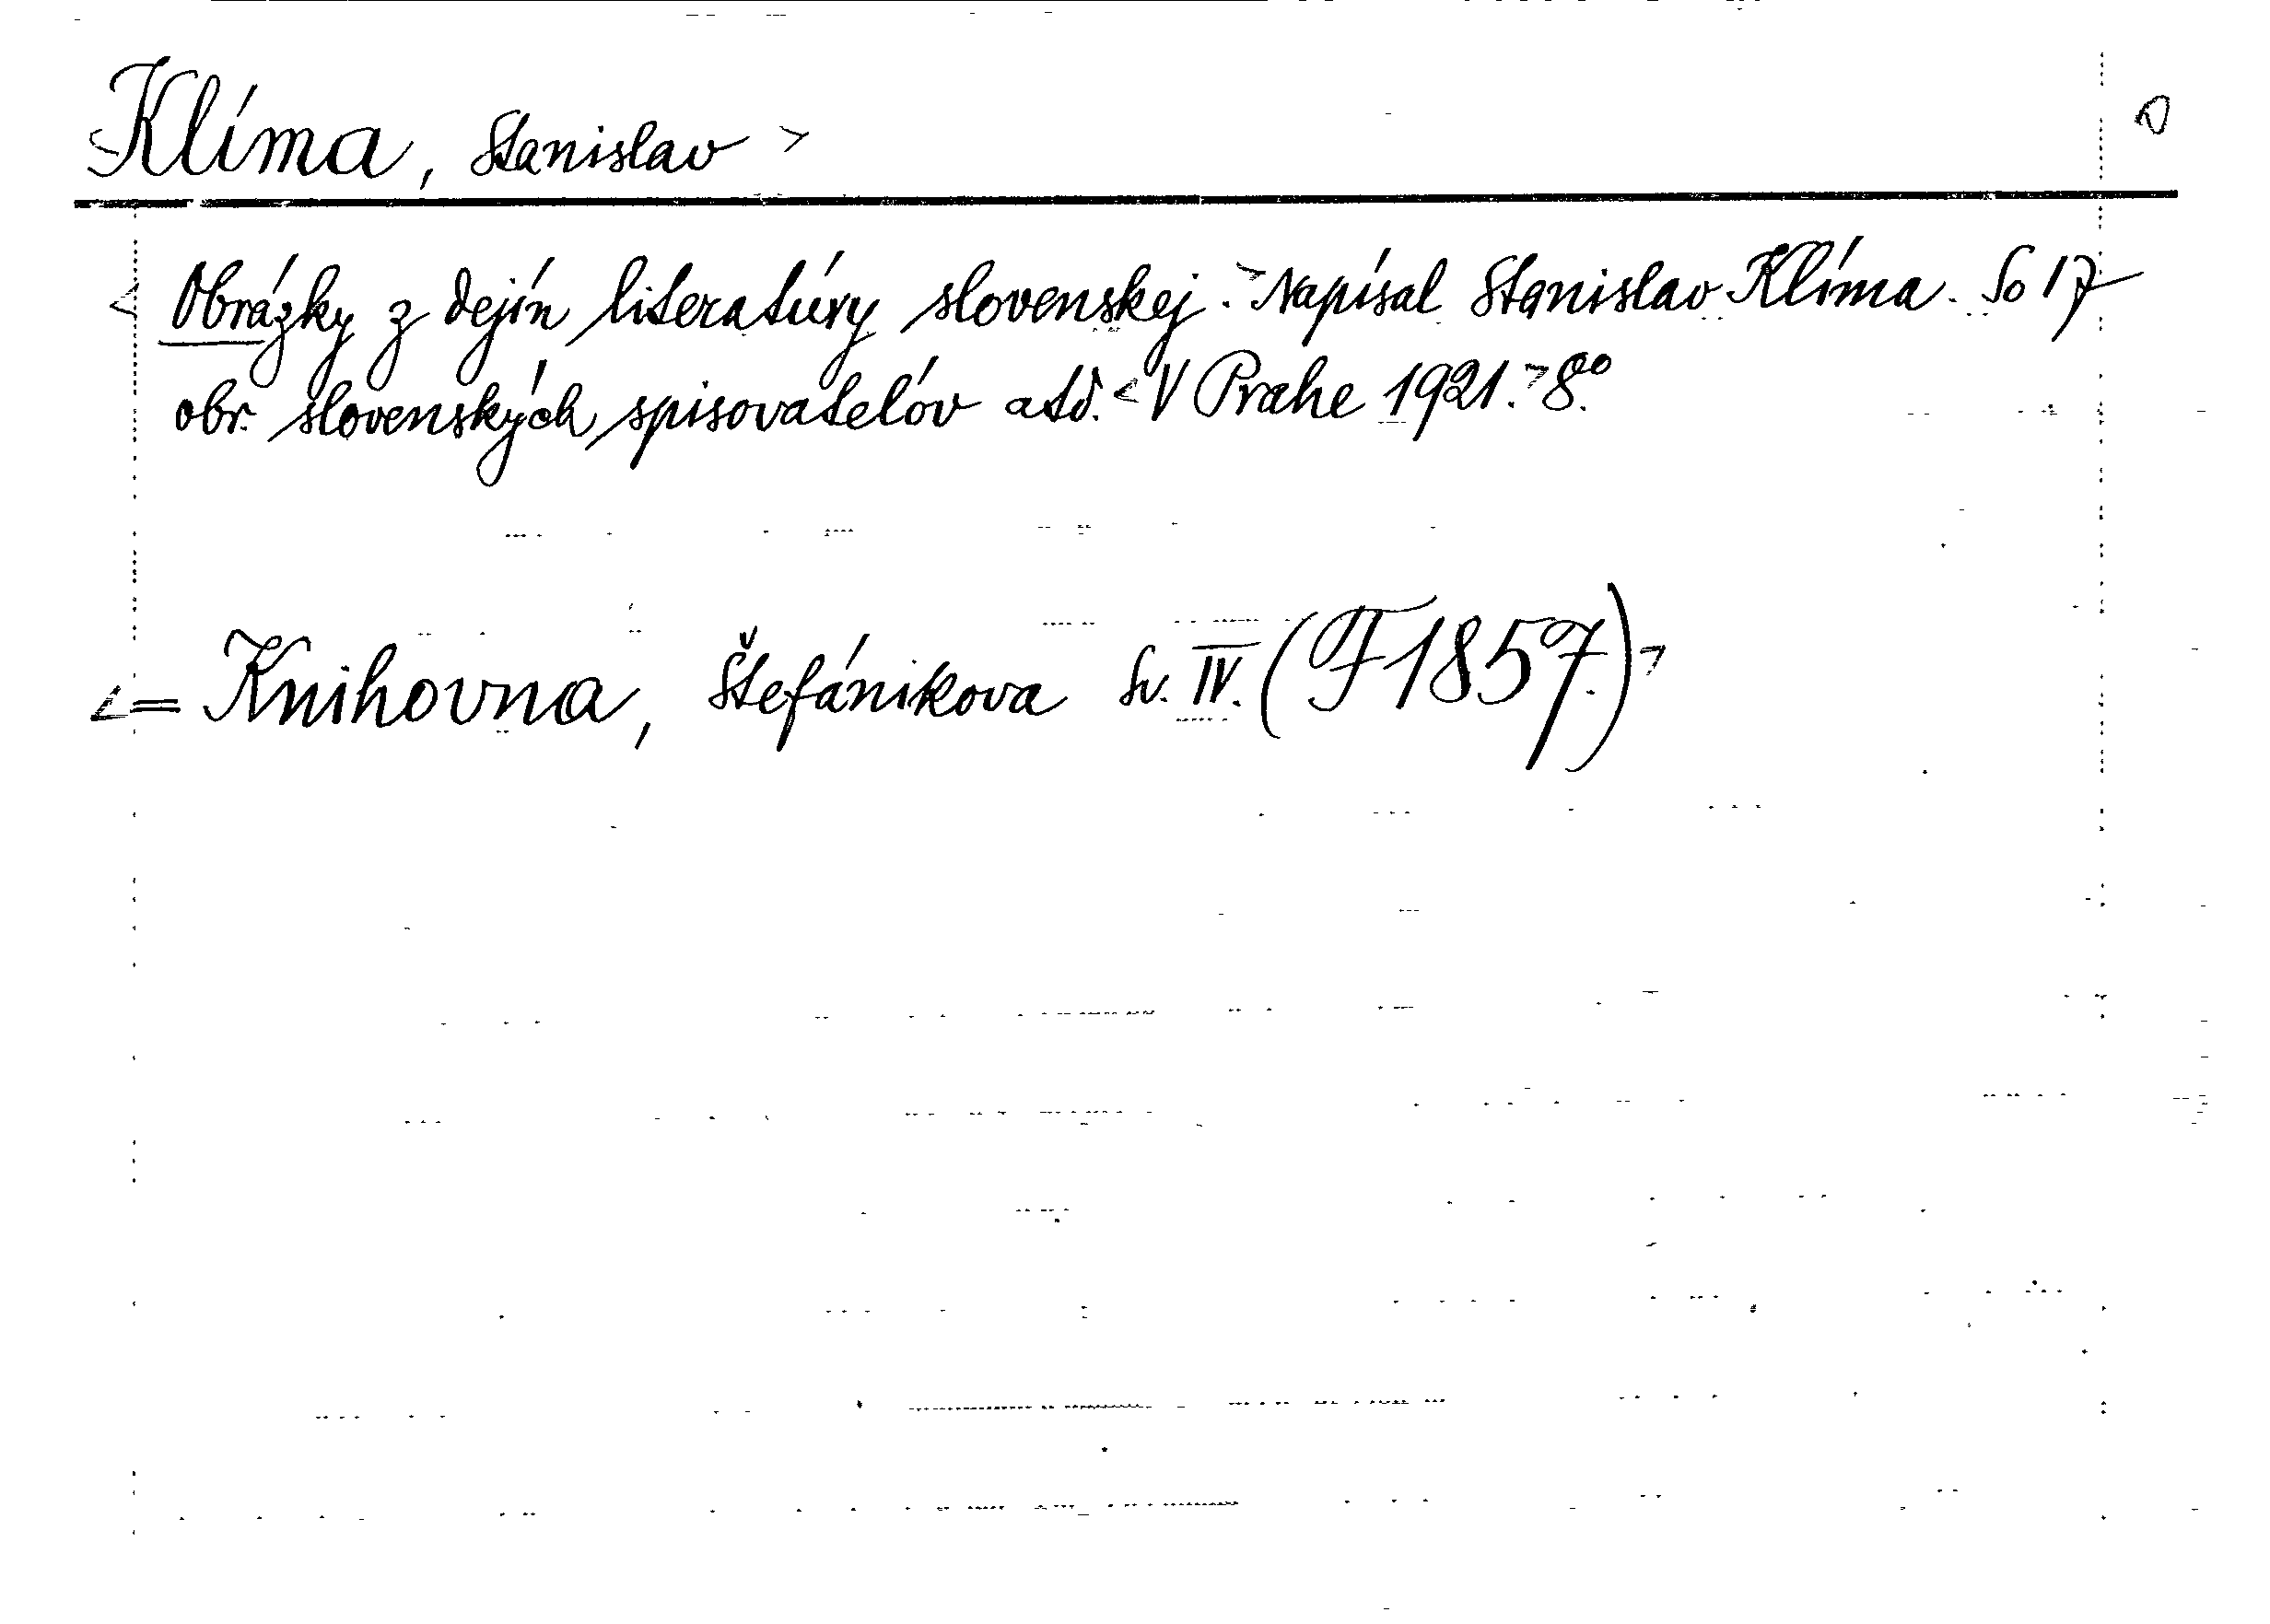 <Klíma, Stanislav>
<Obrázky z dejín literatúry slovenskej.> Napísal Stanislav Klíma. So 17
obr. slovenských spisovatelóv atď. <V Prahe 1921.> 8°.
<= Knihovna, Štefánikova Sv. IV. (F 1857.)>